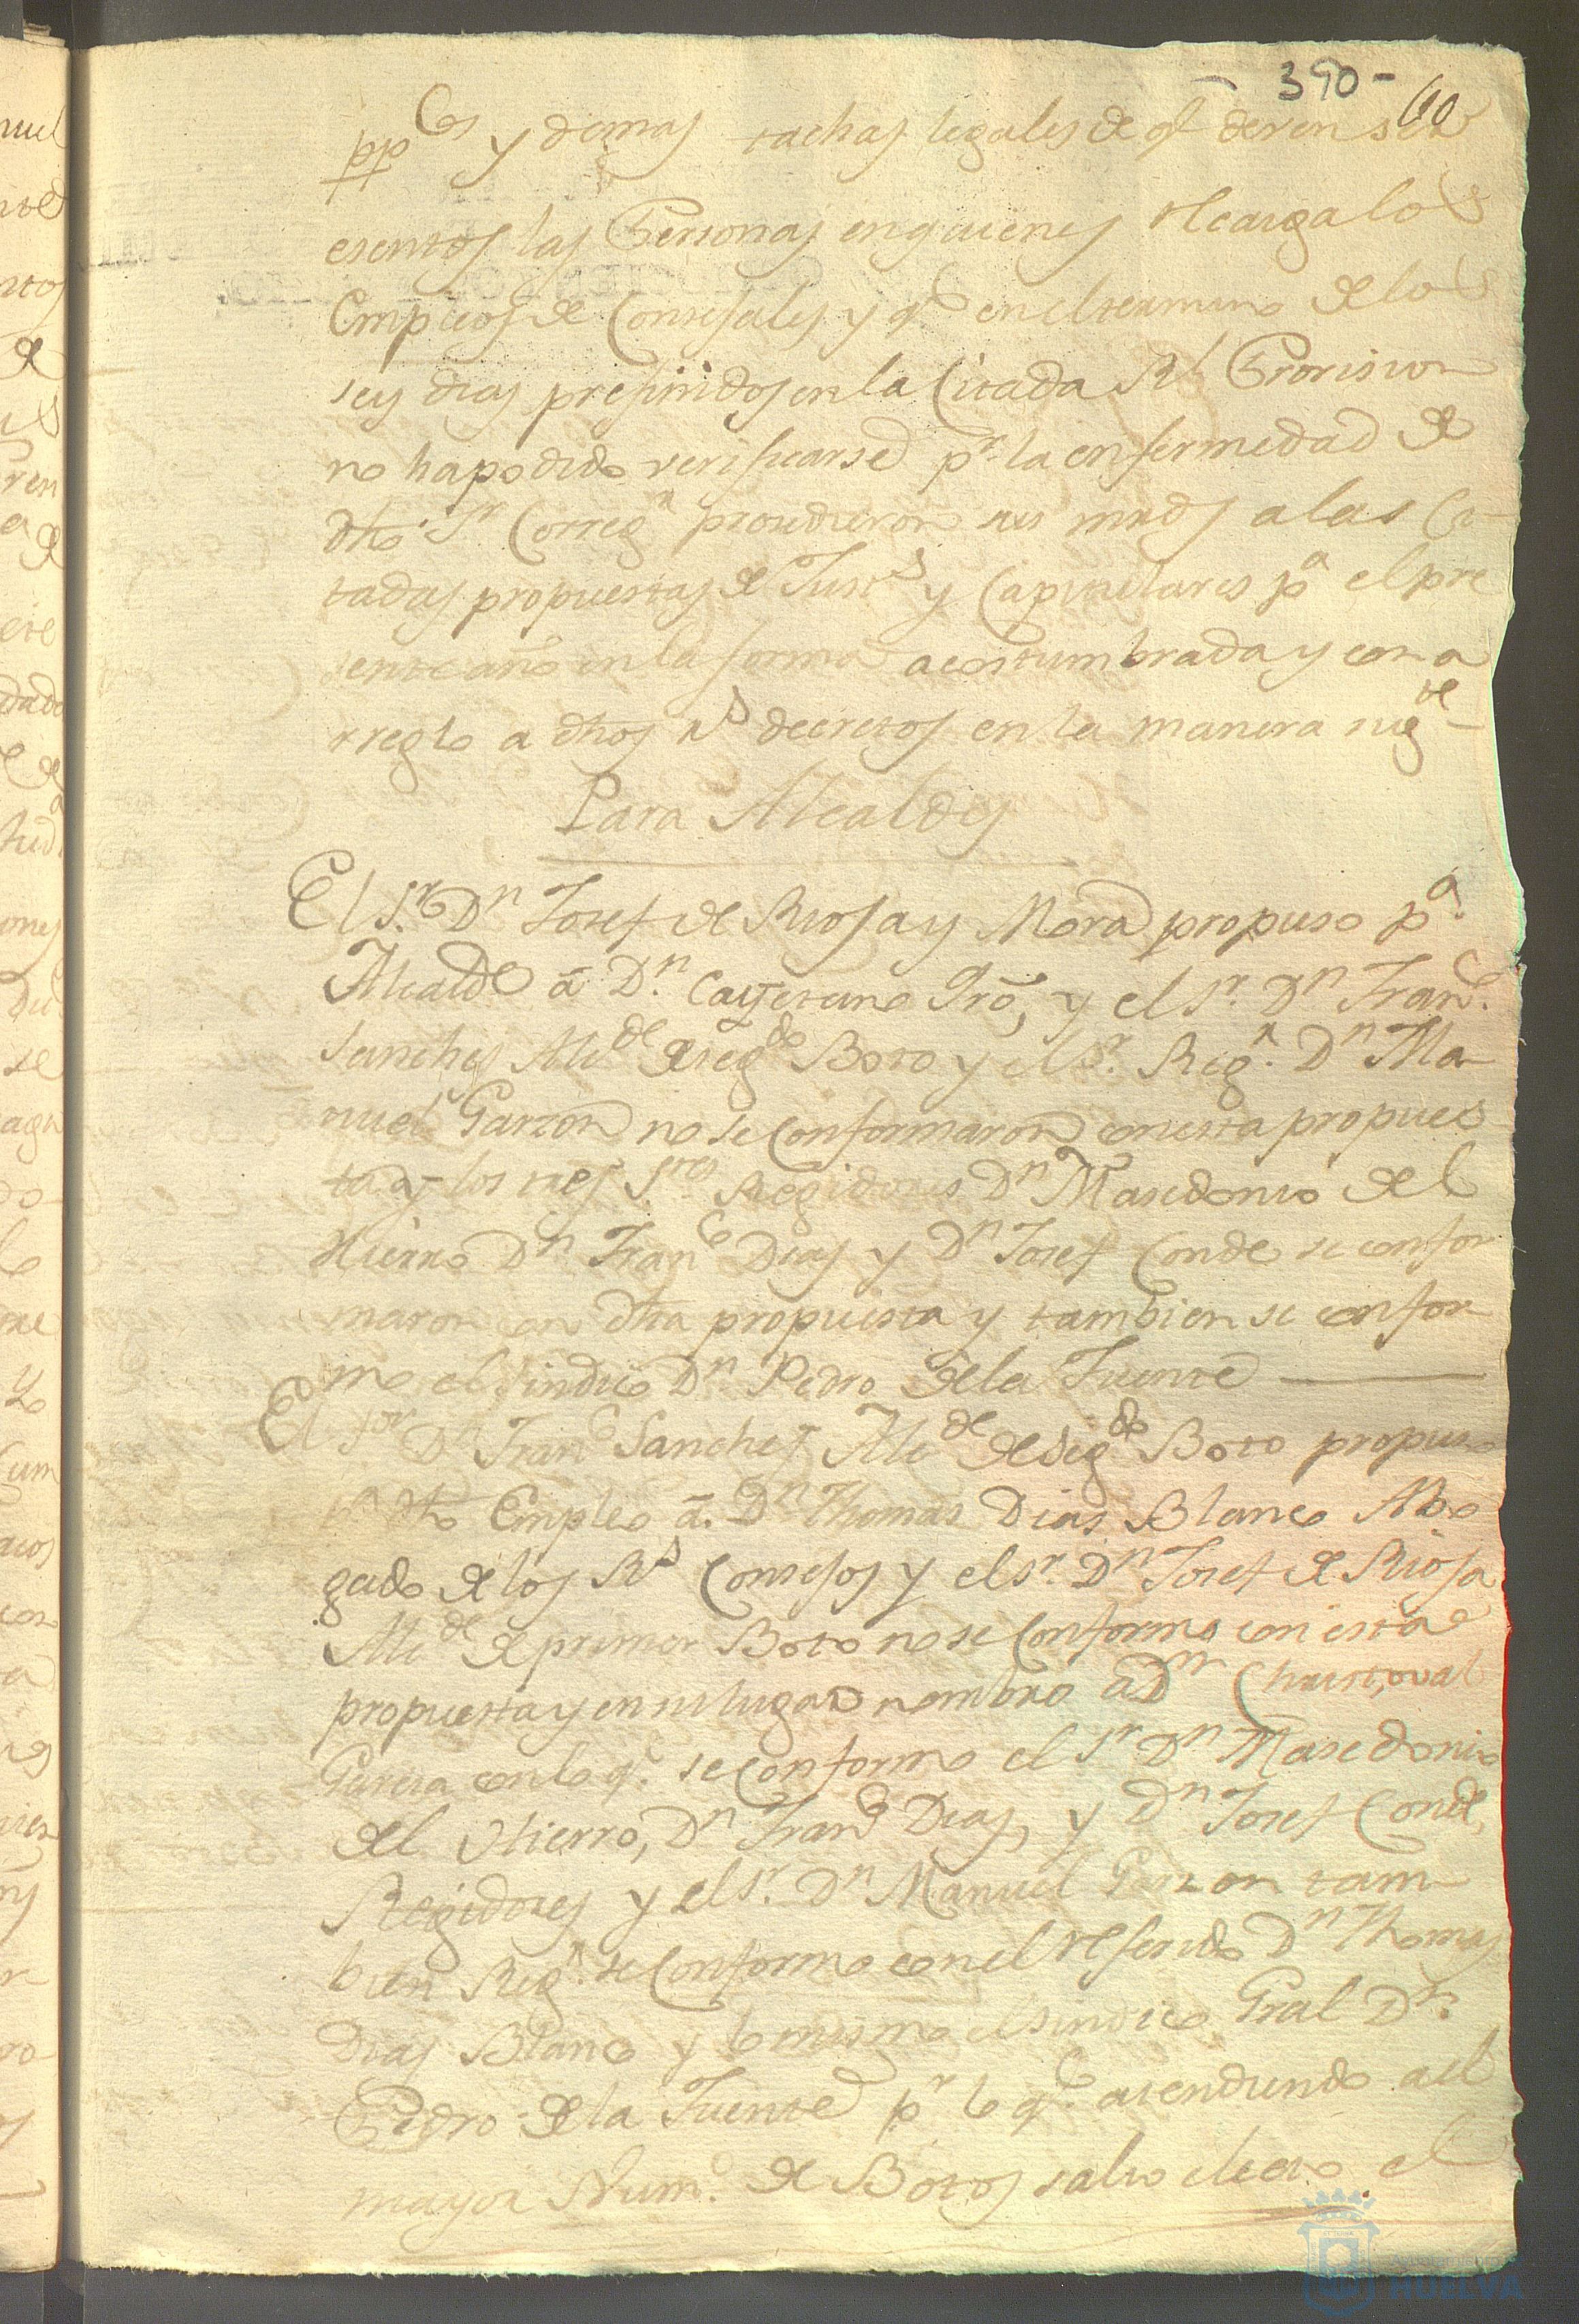 - 390 - 60
pp.cos y demas tachas legales de q.e deven ser
esentos las Personas en quienes recaiga los
Empleos de Consejales, y q.e en el termino de los
seis dias prefinidos en la Citada Rl Provision
no ha podido verificarse p.r la enfermedad de
dho Sr Correg.r prosedieron sus mrds a las Ci-
tadas propuestas de Just.s y Capitulares p.a el pre
sente año en la forma acostumbrada y con a
rreglo a dhos Rs decretos en la manera sig.te
Para Alcaldes
El Sr. Dn Josef de Riosa y Mora propuso p.a
Alcalde á Dn. Cayetano Gro, y el Sr. Dn Fran.co
Sanches Alc.de de seg.do Boto y el Sr. Reg.r Dn Ma-
nuel Garzon no se Conformaron con esta propues
ta y los tres S.res Regidores Dn Masedonio del
Hierro Dn Fran.co Dias y Dn Josef Conde se confor
maron con dha propuesta y tambien se confor
mo el Sindico Dn Pedro de la Fuente
El S.or Dn Fran.co Sanches Alc.de de Seg.do Boto propuso
p.a dho Empleo á Dn Thomas Dias Blanco Abo
gado de los Rs Consejos y el Sr. Dn Josef de Riosa
Alc.de de primer Boto no se Conformo con esta
propuesta y en su lugar nombro a Dn Christoval
Garcia con lo q.e se Conformo el Sr Dn Masedonio
del Hierro, Dn Fran.co Dias, y Dn Josef Conde,
Regidores y el Sr. Dn Manuel Garzon tam
bien Reg.r se Conformo con el referido Dn Thomas
Dias Blanco y lo mismo el Sindico Gral Dn.
Pedro de la Fuente p.r lo q.e atendiendo a el
mayor Num.o de Botos salio electo el
HUELVA